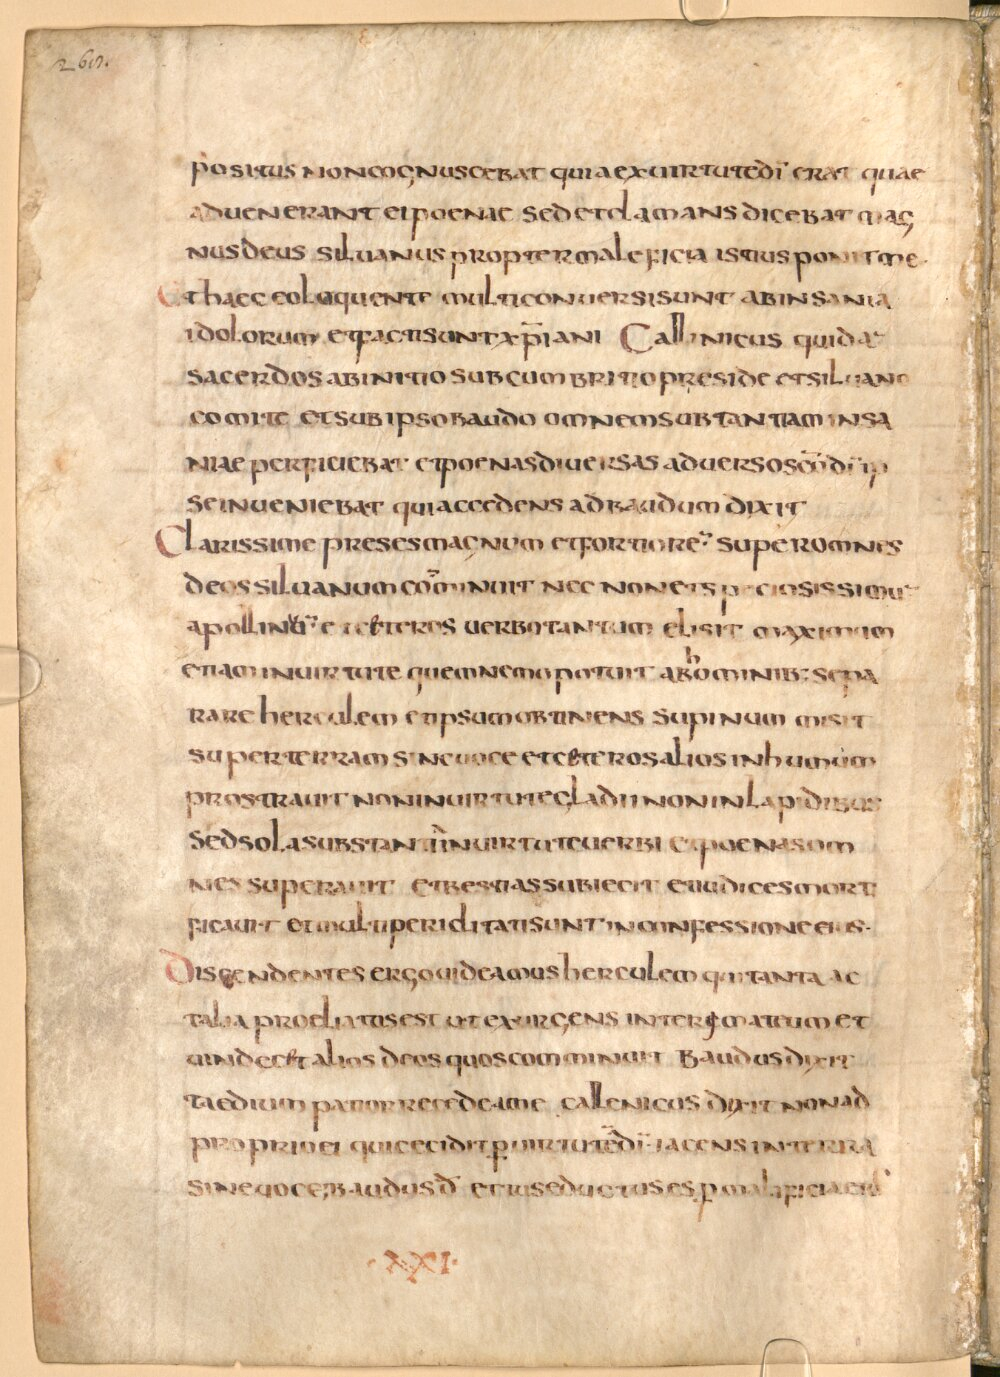 262.
positus non cognuscebat quia ex uirtute dī erat quae
aduenerant ei poenae sed et clamans dicebat mag
nus deus siluanus propter maleficia istius ponit me
Et haec eo loquente multi conuersi sunt ab insania
idolorum et facti sunt xp̄iani Callinicus quidā
sacerdos ab initio sub cumbritio preside et siluano
comite et sub ipso baudo omnem subtantiam insa
niae perficiebat et poenas diuersas aduersos scō dī ip
se inueniebat qui accedens ad baudum dixit
Clarissime preses magnum et fortiorē super omnes
deos siluanum cōminuit nec non et speciosissimū
et ceteros uerbo tantum elisit maximum
etiam in uirtute quem nemo potuit ab hominib: sepa
rare herculem et ipsum obtinens supinum misit
super terram sine uoce et ceteros alios in humum
prostrauit non in uirtute gladii non in lapidibus
sed sola substantia in uirtute uerbi et poenas om
nes superauit et bestias subiecit et iudices mort
ficauit et multi periclitati sunt in confessione eius.
Discendentes ergo uideamus herculem qui tanta ac
talia proeliatus est ut exurgens inter matium et
uindecet alios deos quos comminuit Baudus dixit
taedium patior recede a me callenicus dixit non ad
propriu ei qui cecidit ꝑ uirtutē dī iacens in terra
sine uoce; Baudus d̄ et tu seductus es ꝑ malificia
·XXI·